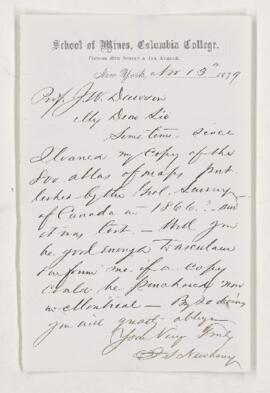 School of Mines, Columbia College.
Corner 49th Street & 4th Avenue.
New York, Nov 13th 1879
Prof J. W. Dawson
My Dear Sir
Some time since
I loaned my copy of the
8vo atlas of maps pub
lished by the Geol. Survey
of Canada in 1866? and
it was lost — Will you
be good enough to ascertain
for me if a copy
could be purchased now
in Montreal — By so doing
you will greatly oblige
Yours Very Truly
J S Newberry